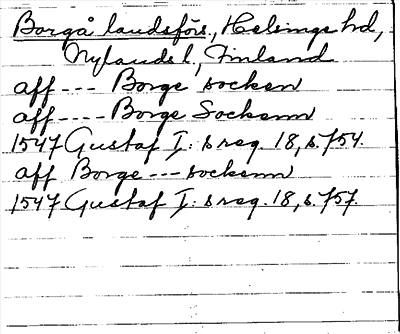 Borgå landsförs., Helsinge hd,
Nylands l., Finland
aff --- Borge socken
aff ---- Borge Sockenn
1547 Gustaf I: s reg. 18, s. 754.
aff Borge --- sockenn
1547 Gustaf I: s reg. 18, s. 757.